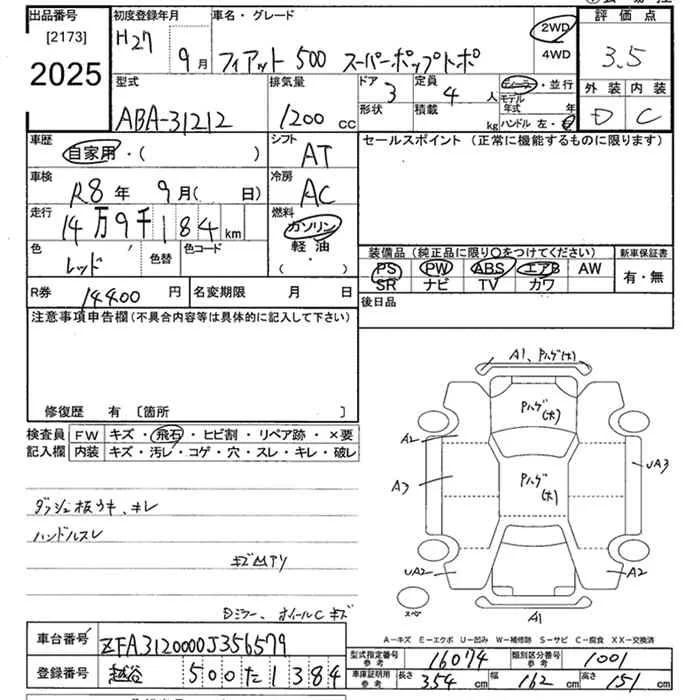 出品番号 初度登録年月 車名・グレード 評価点
[2173]
2025
H27年 9月 フィアット 500 スーパーポップトポ 2WD 3.5
4WD
型式 排気量 ドア 定員 ディーラー・並行 外装 内装
ABA-31212 1200 cc 3 4人 モデル年式 年 D C
形状 積載 kg ハンドル 左・右
車歴 シフト セールスポイント(正常に機能するものに限ります)
自家用・( ) AT
車検 冷房
R8年 9月( 日) AC
走行 燃料
14万9千184km ガソリン
色 色替 色コード 軽油
レッド (・)
装備品(純正品に限り〇をつけてください) 新車保証書
PS PW ABS エアB AW 有・無
SR ナビ TV カワ
R券 14400円 名変期限 月 日 後日品
注意事項申告欄(不具合内容等は具体的に記入して下さい)
修復歴 有 〔箇所 〕
検査員 FW キズ・飛石・ヒビ割・リペア跡・×要
記入欄 内装 キズ・汚レ・コゲ・穴・スレ・キレ・破レ
ダッシュ板ウキ、キレ
ハンドルスレ
Dミラー、ホイールC キズ
A1、Pハゲ(大)
Pハゲ(大)
A2
Pハゲ(大)
A3
UA3
UA2
A2
スペア
A1
A-キズ E-エクボ U-凹み W-補修跡 S-サビ C-腐食 XX-交換済
車台番号 ZFA3120000J356579
型式指定番号 参考 16074 類別区分番号 参考 1001
登録番号 越谷 500 た 1384
車庫証明用 参考 長さ 354 cm 幅 162 cm 高さ 151 cm